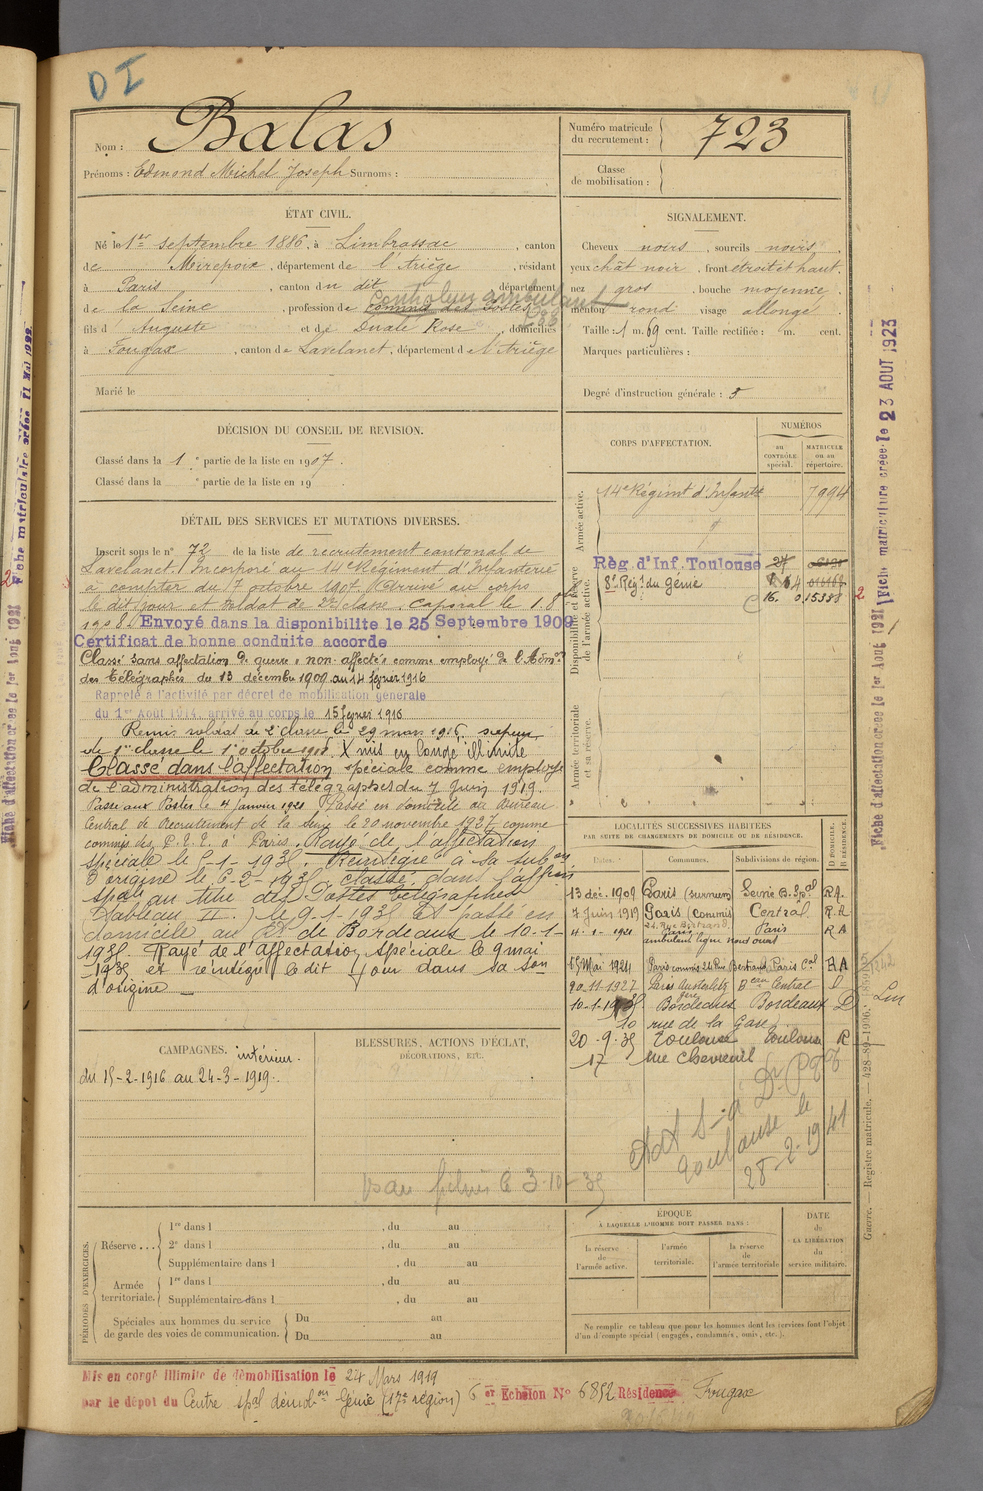 DI
Nom : Balas
Prénoms : Edmond Michel Joseph Surnoms :
Numéro matricule
du recrutement : 723
Classe
de mobilisation :
ÉTAT CIVIL.
Né le 1er septembre 1886, à Limbrassac, canton
de Mirepoix, département de l'Ariège, résidant
à Paris, canton du dit, département
de la Seine, profession de commis des Postes
Controleur ambulant
fils d' Auguste et de Rose, domiciliés
à Fougax, canton de Lavelanet, département de l'Ariège
Marié le
SIGNALEMENT.
Cheveux noirs, sourcils noirs,
yeux chât noir, front étroit et haut,
nez gros, bouche moyenne,
menton rond visage allongé
Taille : 1 m. 69 cent. Taille rectifiée : m. cent.
Marques particulières :
Degré d'instruction générale : 5
DÉCISION DU CONSEIL DE REVISION.
Classé dans la 1 e partie de la liste en 1907.
Classé dans la e partie de la liste en 19
DÉTAIL DES SERVICES ET MUTATIONS DIVERSES.
Inscrit sous le n° 72 de la liste de recrutement cantonal de
Lavelanet. Incorporé au 14e Régiment d'Infanterie
à compter du 7 octobre 1907. Arrivé au corps
le dit jour et soldat de 2e classe. Caporal le 1. 8bre
1908. Envoyé dans la disponibilite le 25 Septembre 1909
Certificat de bonne conduite accorde
Classé sans affectation de guerre "non affecté" comme employé de l'Admon
des Télégraphes du 13 décembre 1909 au 14 février 1916
Rappelé à l'activité par décret de mobilisation générale
du 1er Août 1914. arrivé au corps le 15 février 1916
Remis soldat de 2e classe le 29 mars 1916. sapeur
de 1ere classe le 1er octobre 1918. X mis en congé illimité
Classé dans l'affectation spéciale comme employé
de l'administration des télégraphes du 7 Juin 1919.
Passé aux Postes le 4 Janvier 1921 Passé en domicile au Bureau
Central de Recrutement de la Seine le 20 novembre 1927 comme
commis des P.T.T. à Paris. Rayé de l'affectation
spéciale le
Réintégré à sa subon
d'origine le
classé dans l'affon
spale au titre des Postes Télégraphes
(Tableau II.) le 9-1-1935 et passé en
domicile au de Bordeaux le 10-1-
1935. Rayé de l'Affectation spéciale le 9 mai
1935 et réintégré le dit jour dans sa son
d'origine
CORPS D'AFFECTATION.
NUMÉROS
AU CONTRÔLE spécial.
MATRICULE ou au répertoire.
Armée active.
14e Régimt d'Infanterie 7994
Disponibilité et Réserve de l'armée active.
Règ. d'Inf. Toulouse 27
8e Régt du Génie
16. 015388
Armée territoriale et sa réserve.
LOCALITÉS SUCCESSIVES HABITÉES
PAR SUITE DE CHANGEMENTS DE DOMICILE OU DE RÉSIDENCE.
Dates. Communes. Subdivisions de région. D DOMICILE. R RÉSIDENCE.
13 déc. 1909 Paris (surnum) Seine B. Spal R.A.
7 Juin 1919 Paris (commis) Central R.A
4-1-1921 24. Rue Bertrand Paris Paris R A
ambulant ligne nord ouest
15 Mai 1924 Paris commis 24 Rue Bertrand Paris Cal R A
20-11-1927 Paris Austerlitz Beau Central D
10-1-1935 Bordeaux Bordeaux D
10 rue de la Gare
20-9-35 Toulouse Toulouse R
17 rue Chevreuil
Toulouse le
28-2-1941
CAMPAGNES.
intérieur.
du 15-2-1916 au 24-3-1919.
BLESSURES, ACTIONS D'ÉCLAT,
DÉCORATIONS, ETC.
le 3-10-35
PÉRIODES D'EXERCICES.
Réserve...
1re dans l , du au
2e dans l , du au
Supplémentaire dans l , du au
Armée territoriale.
1re dans l , du au
Supplémentaire dans l , du au
Spéciales aux hommes du service
de garde des voies de communication.
Du au
Du au
ÉPOQUE
À LAQUELLE L'HOMME DOIT PASSER DANS :
la réserve de l'armée active.
l'armée territoriale.
la réserve de l'armée territoriale
DATE
de
LA LIBÉRATION
du
service militaire.
Ne remplir ce tableau que pour les hommes dont les services font l'objet
d'un décompte spécial (engagés, condamnés, omis, etc.).
Mis en congé illimité de démobilisation le 24 Mars 1919
par le dépot du Centre spal démobon Génie (17e région) 6 er Echelon N° 6852 Résidence Fougax
Fiche matriculaire créée le 23 AOUT 1923
Fiche d'affectation créée le 1er Août 1921
Guerre. — Registre matricule. — 428-89-1906.
Fiche matriculaire créée 11 Mai 1922
Fiche d'affectation créée le 1er Août 1921